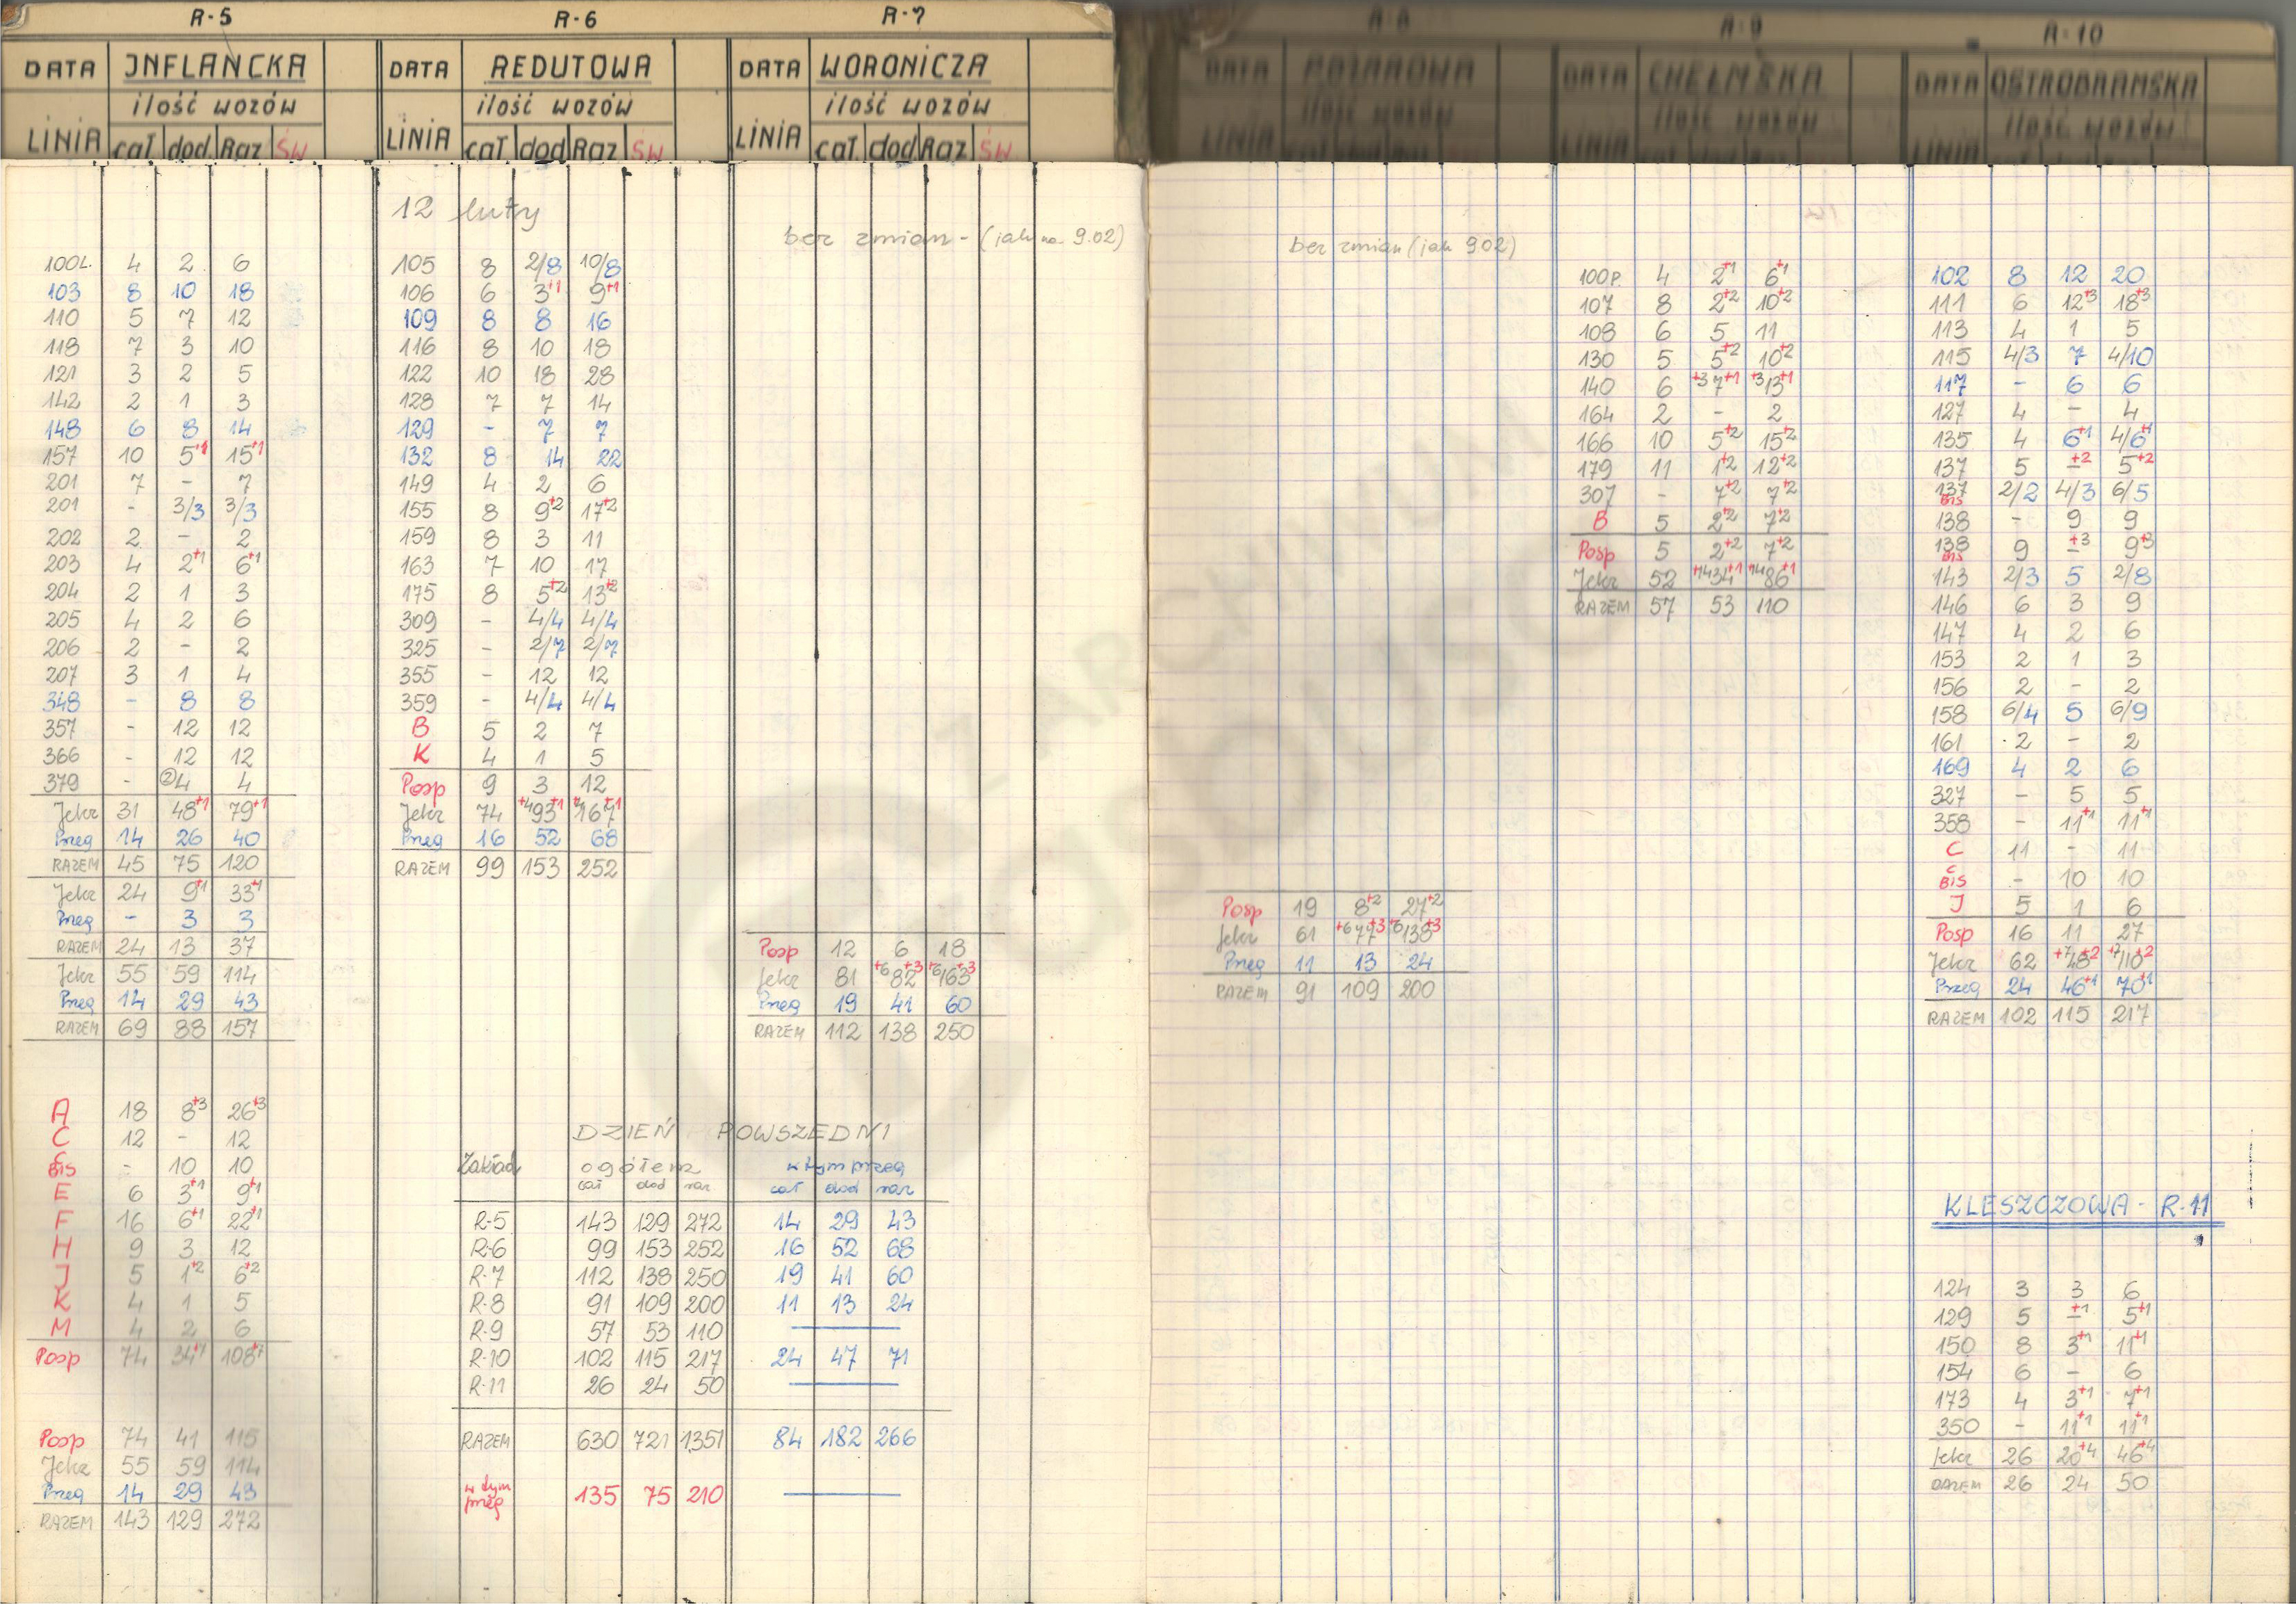 R-5
DATA INFLANCKA
ilość wozów
LINIA cał dod Raz ŚW
100L. 4 2 6
103 8 10 18
110 5 7 12
118 7 3 10
121 3 2 5
142 2 1 3
148 6 8 14
157 10 5+1 15+1
201 7 - 7
201 - 3/3 3/3
202 2 - 2
203 4 2+1 6+1
204 2 1 3
205 4 2 6
206 2 - 2
207 3 1 4
348 - 8 8
357 - 12 12
366 - 12 12
379 - ②4 4
Jelcz 31 48+1 79+1
Przeg 14 26 40
RAZEM 45 75 120
Jelcz 24 9+1 33+1
Przeg - 3 3
RAZEM 24 13 37
Jelcz 55 59 114
Przeg 14 29 43
RAZEM 69 88 157
A 18 8+3 26+3
C 12 - 12
C BIS - 10 10
E 6 3+1 9+1
F 16 6+1 22+1
H 9 3 12
J 5 1+2 6+2
K 4 1 5
M 4 2 6
Posp 74 34+7 108+7
Posp 74 41 115
Jelcz 55 59 114
Przeg 14 29 43
RAZEM 143 129 272
R-6
DATA REDUTOWA
ilość wozów
LINIA cał dod Raz ŚW
12 luty
105 8 2/8 10/8
106 6 3+1 9+1
109 8 8 16
116 8 10 18
122 10 18 28
128 7 7 14
129 - 7 7
132 8 14 22
149 4 2 6
155 8 9+2 17+2
159 8 3 11
163 7 10 17
175 8 5+2 13+2
309 - 4/4 4/4
325 - 2/7 2/7
355 - 12 12
359 - 4/4 4/4
B 5 2 7
K 4 1 5
Posp 9 3 12
Jelcz 74 +4 93+1 +4 167+1
Przeg 16 52 68
RAZEM 99 153 252
R-7
DATA WORONICZA
ilość wozów
LINIA cał dod Raz ŚW
bez zmian - (jak na 9.02)
Posp 12 6 18
Jelcz 81 +6 82+3 +6 163+3
Przeg 19 41 60
RAZEM 112 138 250
DZIEŃ POWSZEDNI
Zakład ogółem w tym przeg
cał dod raz cał dod raz
R-5 143 129 272 14 29 43
R-6 99 153 252 16 52 68
R-7 112 138 250 19 41 60
R-8 91 109 200 11 13 24
R-9 57 53 110 —
R-10 102 115 217 24 47 71
R-11 26 24 50 —
RAZEM 630 721 1351 84 182 266
w tym 135 75 210 —
R-8
DATA POŻAROWA
ilość wozów
LINIA
bez zmian (jak 9.02)
Posp 19 8+2 27+2
Jelcz 61 +6 77+3 +6 138+3
Przeg 11 13 24
RAZEM 91 109 200
R-9
DATA CHEŁMSKA
ilość wozów
LINIA
100P. 4 2+1 6+1
107 8 2+2 10+2
108 6 5 11
130 5 5+2 10+2
140 6 +3 7+1 +3 13+1
164 2 - 2
166 10 5+2 15+2
179 11 1+2 12+2
307 - 7+2 7+2
B 5 2+2 7+2
Posp 5 2+2 7+2
Jelcz 52 +14 34+1 +14 86+1
RAZEM 57 53 110
R-10
DATA OSTROBRAMSKA
ilość wozów
LINIA
102 8 12 20
111 6 12+3 18+3
113 4 1 5
115 4/3 7 4/10
117 - 6 6
127 4 - 4
135 4 6+1 4/6+1
137 5 -+2 5+2
137 BIS 2/2 4/3 6/5
138 - 9 9
138 BIS 9 -+3 9+3
143 2/3 5 2/8
146 6 3 9
147 4 2 6
153 2 1 3
156 2 - 2
158 6/4 5 6/9
161 2 - 2
169 4 2 6
327 - 5 5
358 - 11+1 11+1
C 11 - 11
C BIS - 10 10
J 5 1 6
Posp 16 11 27
Jelcz 62 +7 48+2 +7 110+2
Przeg 24 46+1 70+1
RAZEM 102 115 217
KLESZCZOWA - R-11
124 3 3 6
129 5 -+1 5+1
150 8 3+1 11+1
154 6 - 6
173 4 3+1 7+1
350 - 11+1 11+1
Jelcz 26 20+4 46+4
RAZEM 26 24 50